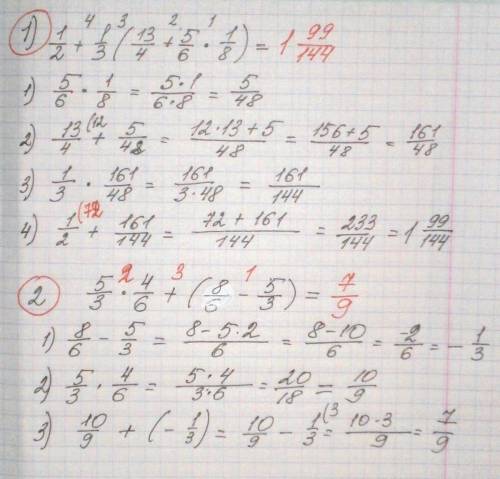 1) 1/2 +⁴ 1/3 ³( 13/4 +² 5/6 ·¹ 1/8 ) = 1 99/144
1) 5/6 · 1/8 = 5·1/6·8 = 5/48
2) 13/4 (12 + 5/48 = 12·13+5/48 = 156+5/48 = 161/48
3) 1/3 · 161/48 = 161/3·48 = 161/144
4) 1/2 (72 + 161/144 = 72+161/144 = 233/144 = 1 99/144
2 5/3 ·² 4/6 +³ ( 8/6 -¹ 5/3 ) = 7/9
1) 8/6 - 5/3 = 8-5·2/6 = 8-10/6 = -2/6 = - 1/3
2) 5/3 · 4/6 = 5·4/3·6 = 20/18 = 10/9
3) 10/9 + (- 1/3) = 10/9 - 1/3 (3 = 10·3/9 = 7/9